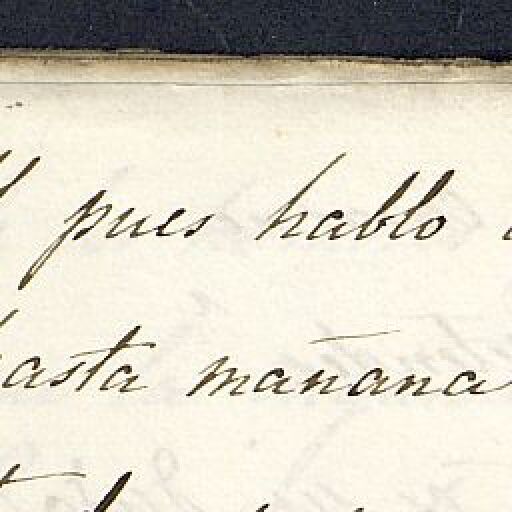 pues hablo
hasta mañana